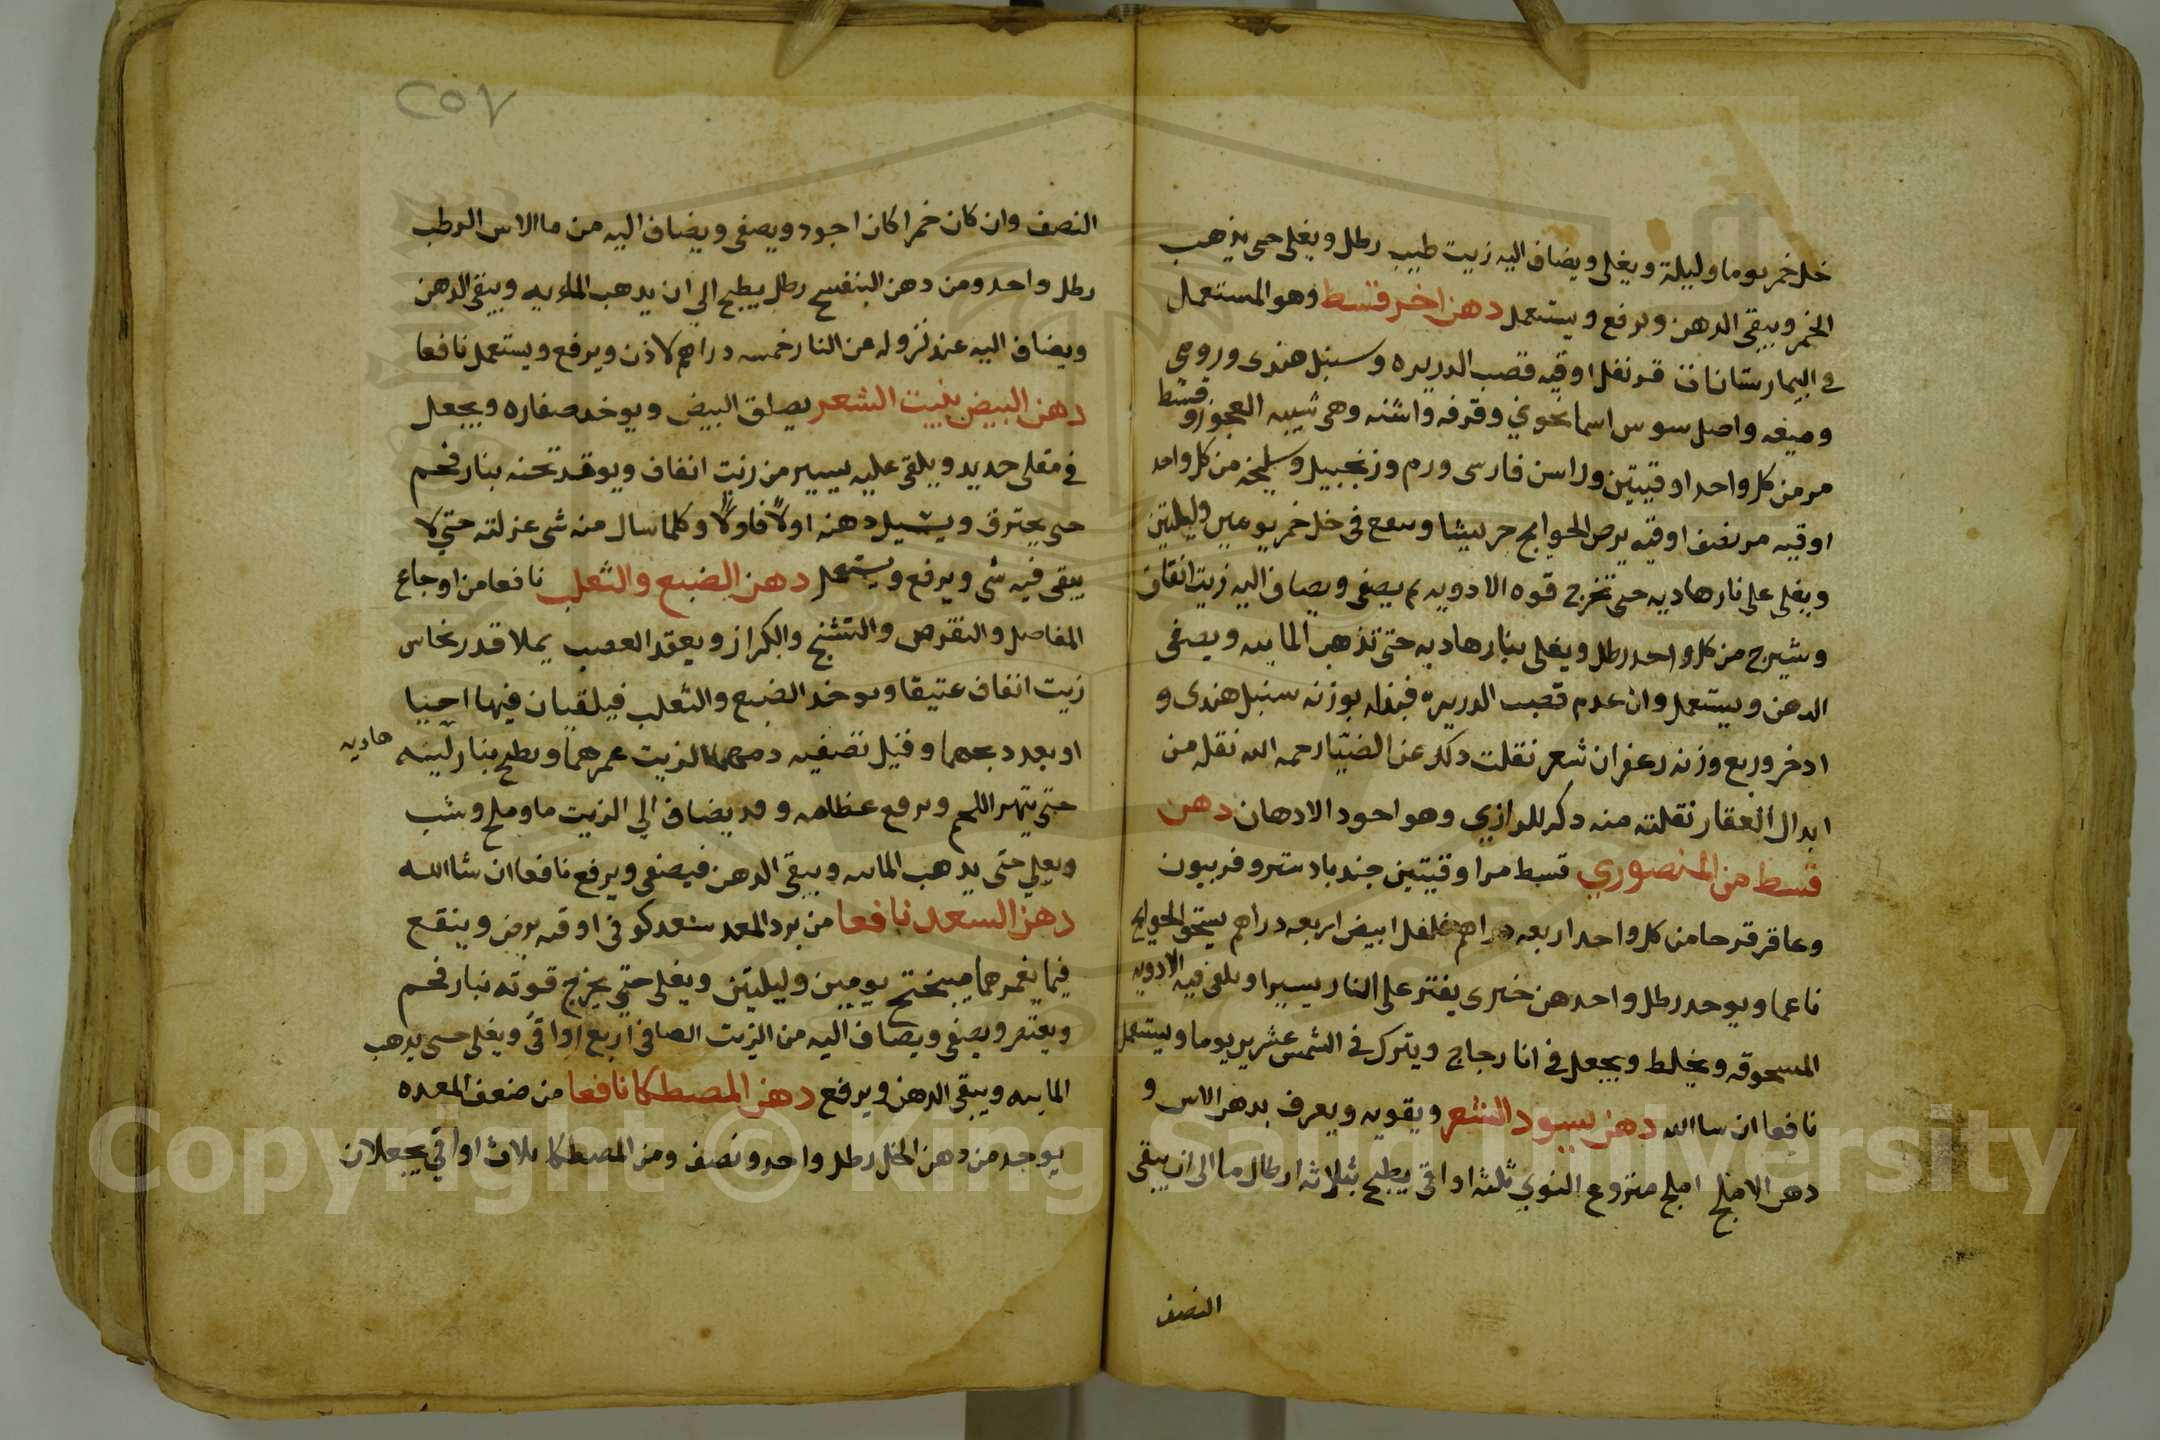 خل خمر يوما وليلة ويغلى ويضاف اليه زيت طيب رطل ويغلى حى يذهب
الخمر ويبقى الدهن ويرفع ويستعمل دهن اخر قسط وهو المستعمل
فى البيمارستانات قرنفل اوقيه قصب الدريره وسنبل هندى ورومى
وميعه واصل سوس اسمانجوني وقرفه واشنه وهى شيبه العجوز وقسط
مر من كل واحد اوقيتين وراسن فارسى ورم وزنجبيل وسليخه من كل واحد
اوقيه مر نصف اوقيه يرض الحوايج جريشا وينقع فى خل خمر يومين وليلتين
ويغلى على نار هاديه حتى تخرج قوه الادويه ثم يصفى ويضاف اليه زيت انفاق
وشيرج من كل واحد رطل ويغلى بنار هاديه حتى تذهب الماييه ويصفى
الدهن ويستعمل وان عدم قصب الدريره فبدله بوزنه سنبل هندى و
ادخر وربع وزنه زعفران شعر نقلت دلك عن الضيا رحمه الله نقله من
ابدال العقار نقلته منه دكر للرازي وهو اجود الادهان دهن
قسط من المنصوري قسط مر اوقيتين جندبادستر وفربيون
وعاقرقرحا من كل واحد اربعه دراهم فلفل ابيض اربعه دراهم يسحق الحوايج
ناعما ويوخد رطل واحد دهن خيرى يفتر على النار يسيرا ويلقى فيه الادويه
المسحوقه ويخلط ويجعل فى انا زجاج ويترك فى الشمس عشرين يوما ويستعمل
نافعا ان سا الله دهن يسود الشعر ويقويه ويعرف بدهن الاس و
دهن الاملج املج منزوع النوي ثلثه اواقى يطبخ بثلاثه ارطال ما الى ان يبقى
النصف
٢٥٧
النصف وان كان خمرا كان اجود ويصفى ويضاف اليه من ما الاس الرطب
رطل واحد ومن دهن البنفسج رطل يطبخ الي ان يدهب المايه ويبقى الدهن
ويضاف اليه عند نزوله من النار خمسه دراهم لادن ويرفع ويستعمل نافعا
دهن البيض ينبت الشعر يصلق البيض ويوخد صفاره ويجعل
في مقلى حديد ويلقى عليه يسير من زيت انفاق ويوقد تحته بنار فحم
حى يحترق ويشيل دهنه اولاً فاولاً وكلما سال منه شى عزلته حتي لا
يبقى فيه شى ويرفع ويستعمل دهن الضبع والثعلب نافعا من اوجاع
المفاصل والنقرص والتشنج والكزاز ويعقد العصب يملا قدر نحاس
زيت انفاق عتيقا ويوخد الضبع والثعلب فيلقيان فيها احيا
او بعد دبحهما وقيل نصفيه دمهما الزيت غمرهما ويطبخ بنار لينه هاديه
حتى يتهرا اللحم ويرفع عظامه وقد يضاف الي الزيت ما وملح وشب
ويغلي حتى يدهب المايه ويبقى الدهن فيصفى ويرفع نافعا ان شا الله
دهن السعد نافعا من برد المعد سعد كوفى اوقيه يرض وينقع
فيما يغمرها ميبختج يومين وليلتين ويغلى حتي يخرج قوته بنار فحم
ويعتصر ويصفى ويضاف اليه من الزيت الصافى اربع اواقى ويغلى حتى يدهب
المايه ويبقى الدهن ويرفع دهن المصطكا نافعا من ضعف المعده
يوخد من دهن الخل رطل واحد ونصف ومن المصطكا ثلاث اواقي يجعلان
Copyright © King Saud University